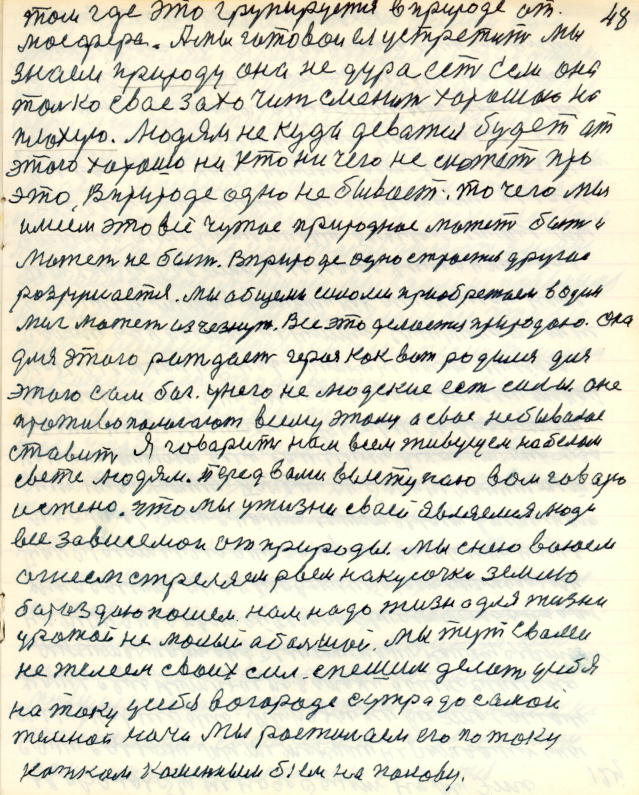 том где это групируется в природе ат. 48
мосфера. А мы готовой ей устретить мы
знаем природу она не дура ест сели она
толко свае захочит сменит харошою на
плохую. Людям не куди деватся будет ат
этого харашо ни кто ни чего не скажет про
это, В природе одно не бывает. то чего мы
имеем это всё чужое природнае может быт и
может не быт. В природе одно строется другое
розрушается. мы общеми силоми приобретаем в один
миг может изчезнут. Все это делается природою. она
для этого рождает героя как вот родился для
этого сам бог. унего не людские ест силы. оне
противополагают всему этому а свае небывалое
ставит Я говарит нам всем живущем на белом
свете людям. перед вами выступаю вам говарю
истено. что мы у жизни своей являемся люди
все зависемои от природы. мы с нею воюем
огнем стреляем роем на кусочки землю
бароздаю пашем. нам надо жизно для жизни
урожой не малый а болшой. мы тут свами
не желеем своих сил. спешим делат уибя
на току уибя вогороде сутра до самой
темной начи мы ростилаем его по току
катком каменным бьем на полову.